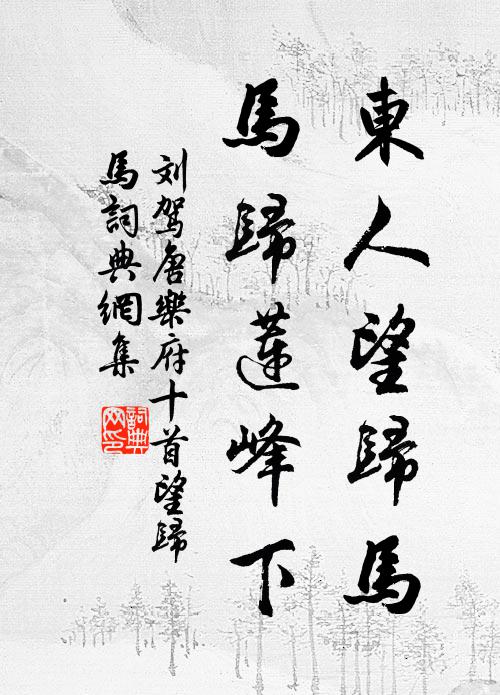 東人望歸馬
馬歸蓮峰下
刘驾唐樂府十首望歸
馬詞典網集
詞典
网印